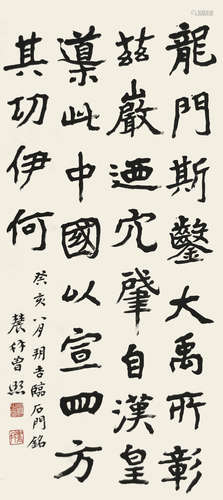 龍門斯鑿大禹所彰
茲巖迺穴肇自漢皇
導此中國以宣四方
其功伊何
癸亥八月朔吉臨石門銘
農髯曾熙